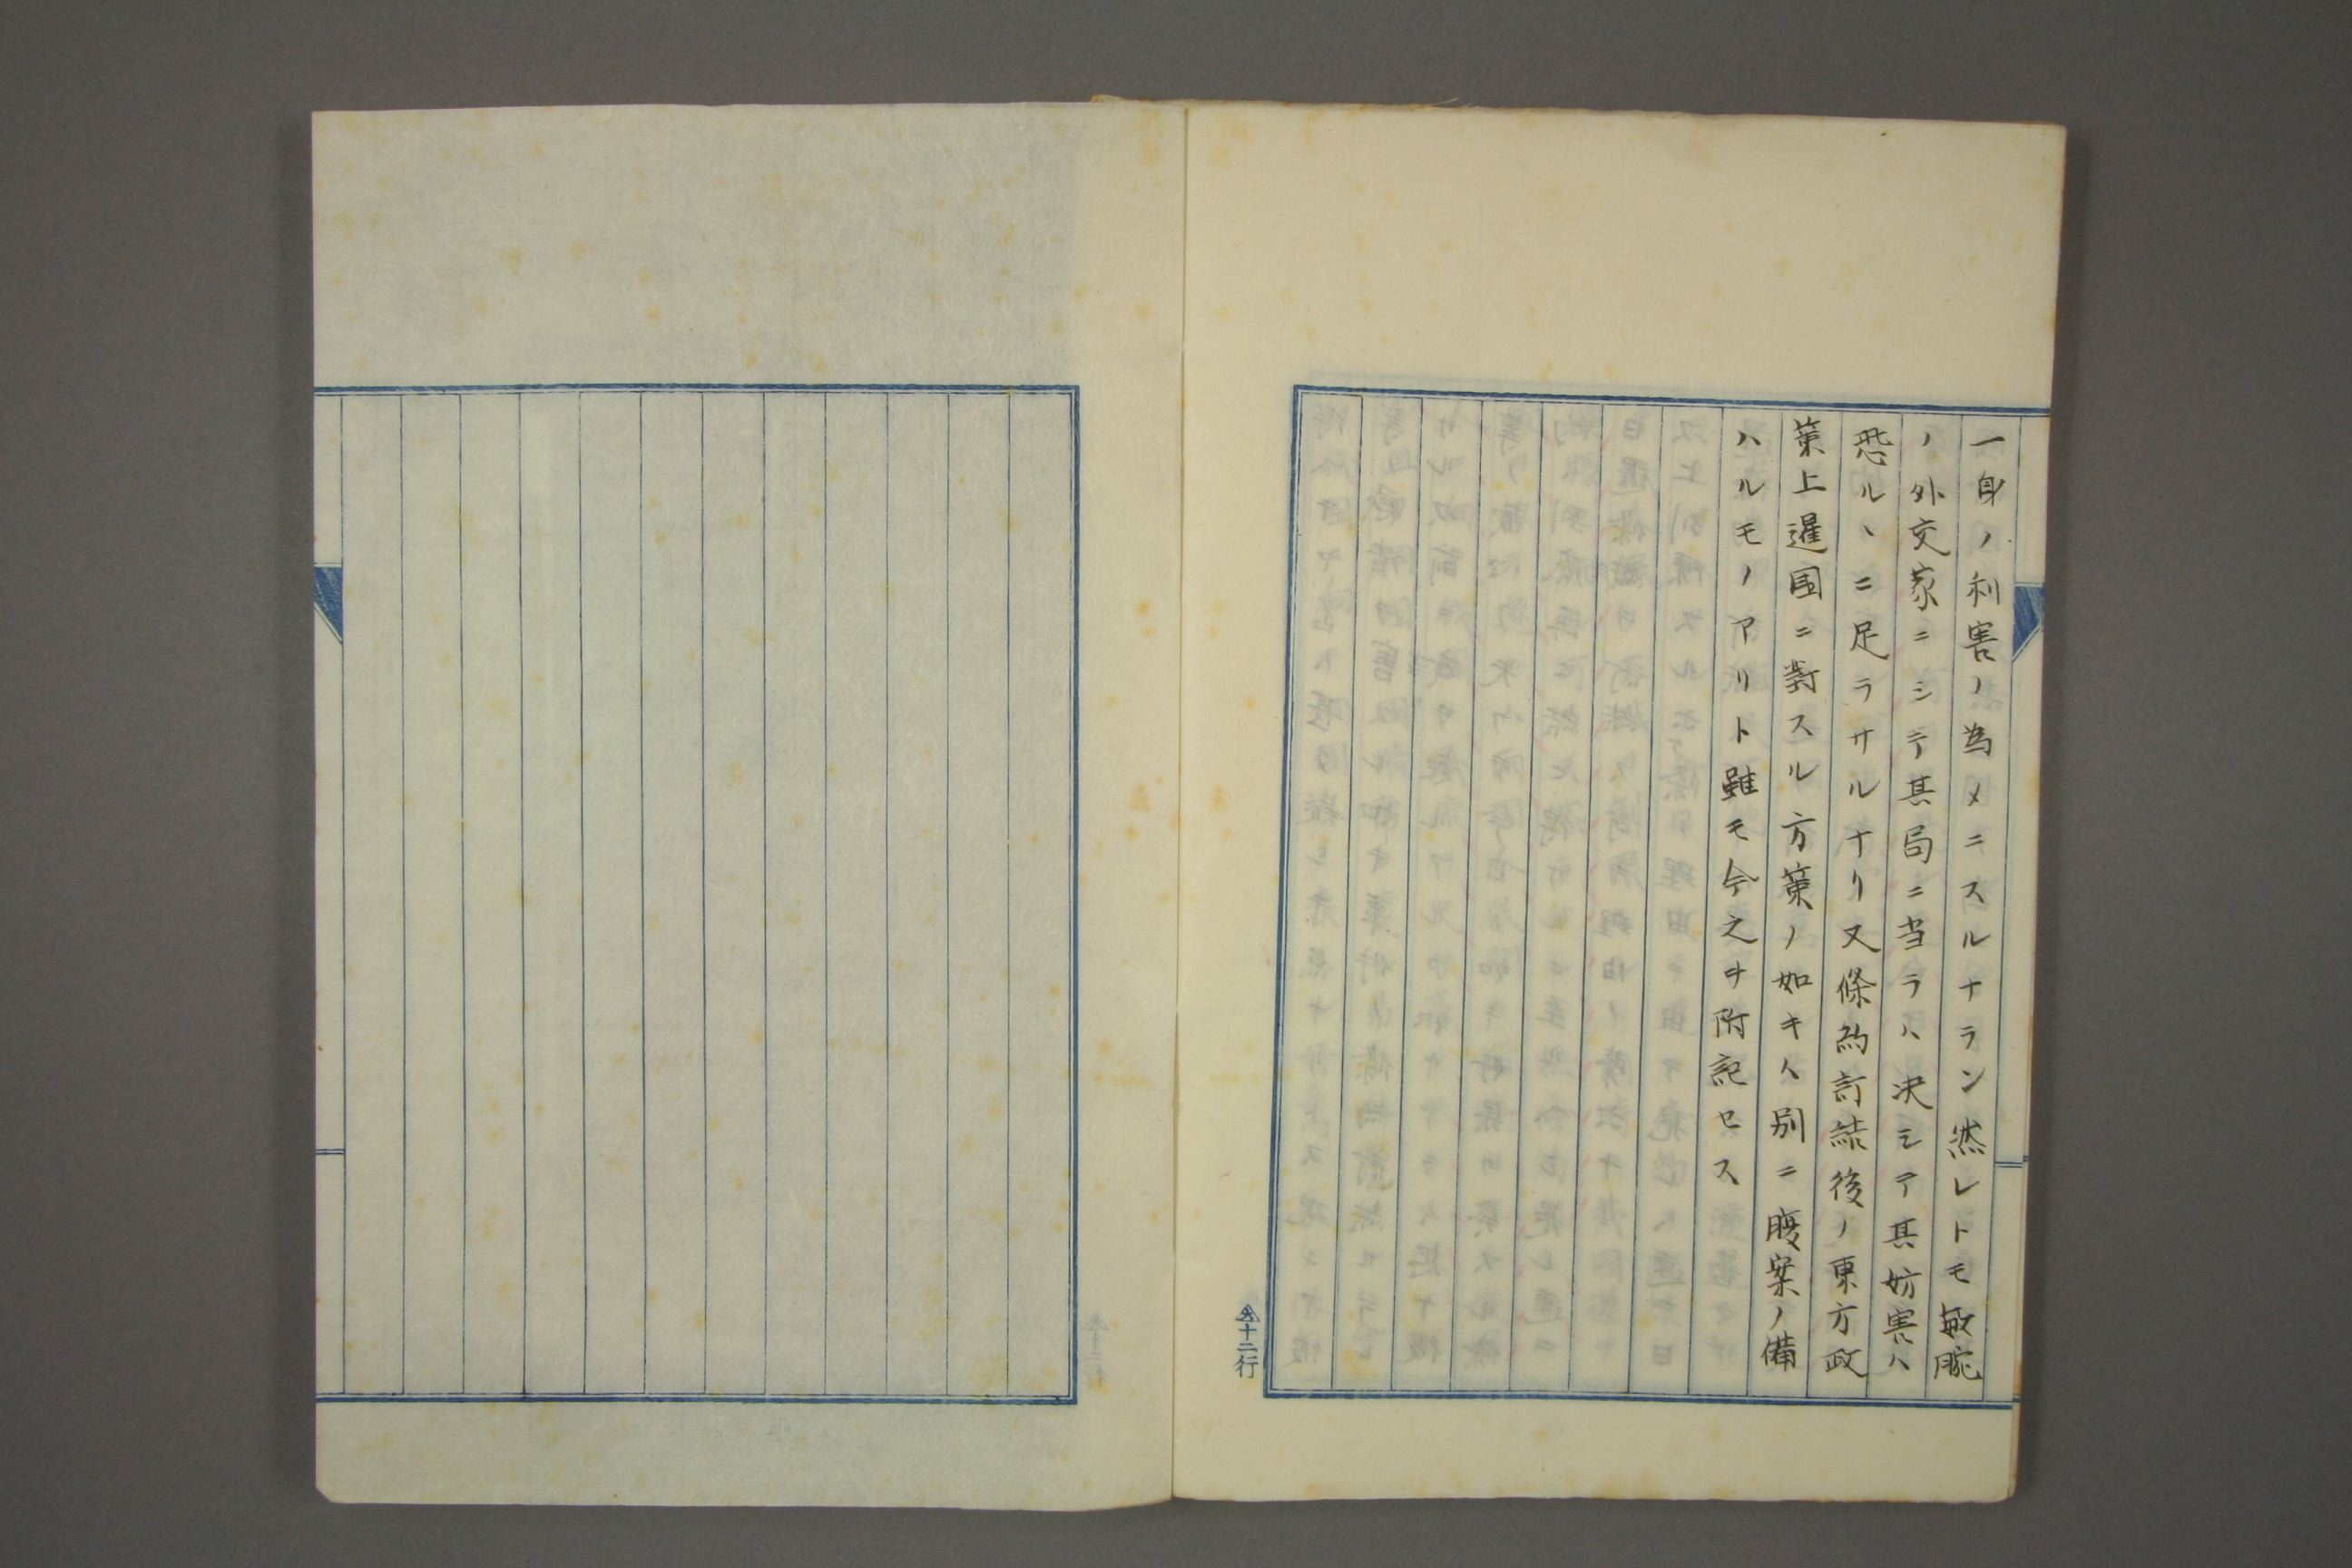 一身ノ利害ノ為メニスルナラン然レトモ敏腕
ノ外交家ニシテ其局ニ当ラハ決シテ其妨害ハ
恐ルヽニ足ラサルナリ又條約訂結後ノ東方政
策上暹国ニ對スル方策ノ如キハ別ニ腹案ノ備
ハルモノアリト雖モ今之ヲ附記セス
十二行